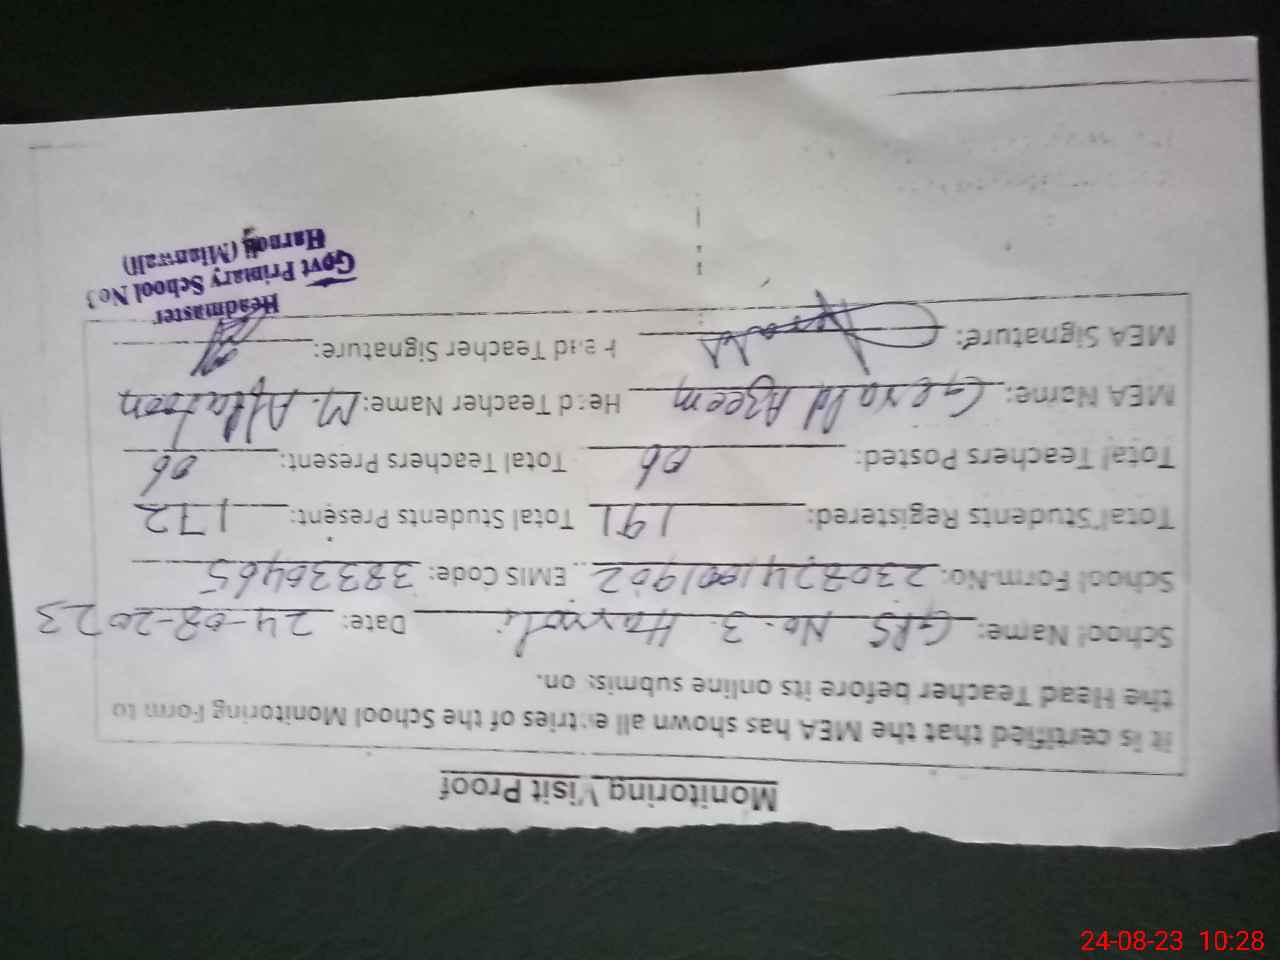 Monitoring Visit Proof
It is certified that the MEA has shown all entries of the School Monitoring Form to
the Head Teacher before its online submission.
School Name: GPS No. 3 Harnoli Date: 24-08-2023
School Form No: EMIS Code: 38330465
Total Students Registered: 191 Total Students Present: 172
Total Teachers Posted: 06 Total Teachers Present: 06
MEA Name: Gerald Azeem Head Teacher Name: M. Aflatoon
MEA Signature: Head Teacher Signature:
Headmaster
Govt Primary School No 3
Harnoli (Mianwali)
24-08-23 10:28